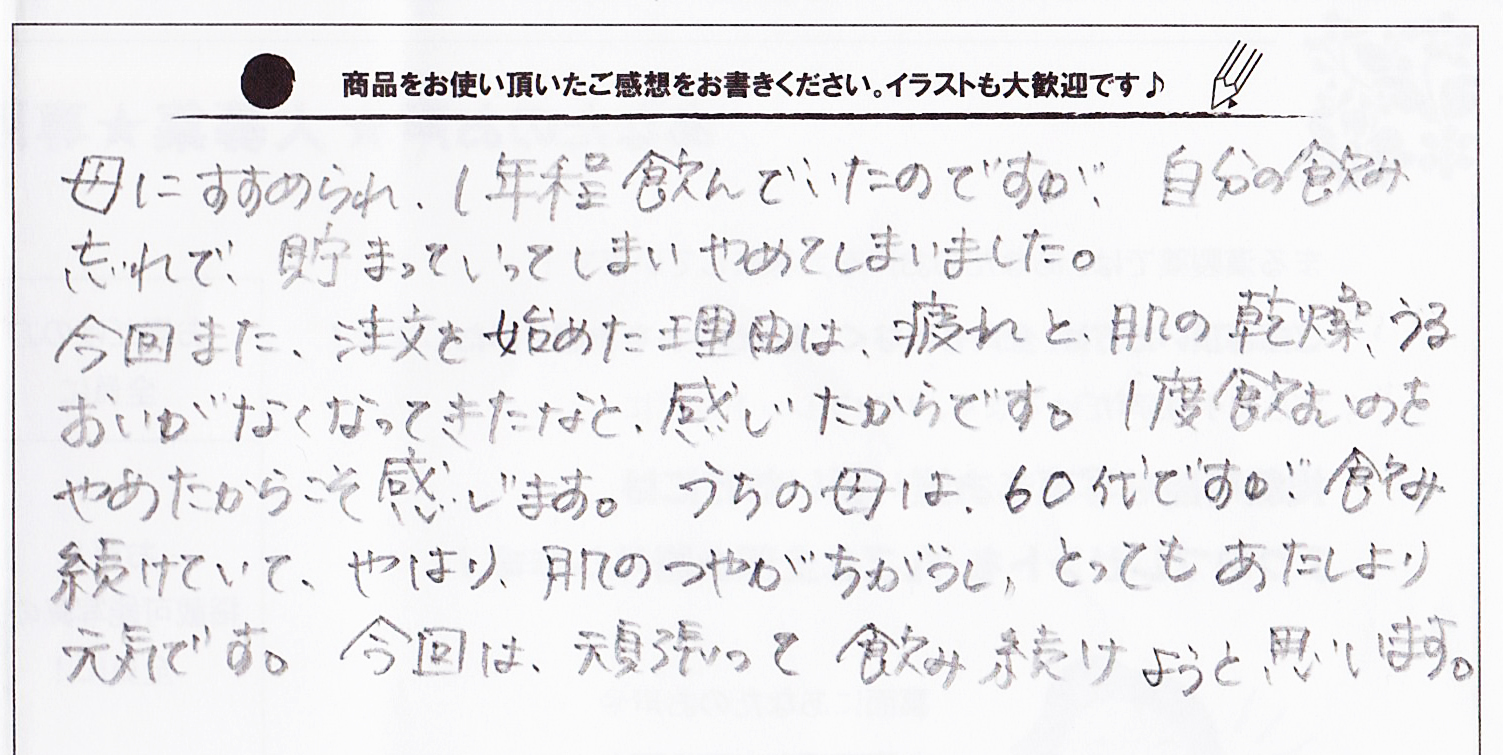 商品をお使い頂いたご感想をお書きください。イラストも大歓迎です♪
母にすすめられ、1年程飲んでいたのですが、自分の飲み
忘れで、貯まっていってしまいやめてしまいました。
今回また、注文を始めた理由は、疲れと、肌の乾燥、うる
おいがなくなってきたなと、感じたからです。1度飲むのを
やめたからこそ感じます。うちの母は、60代ですが、飲み
続けていて、やはり、肌のつやがちがうし、とってもあたしより
元気です。今回は、頑張って飲み続けようと思います。